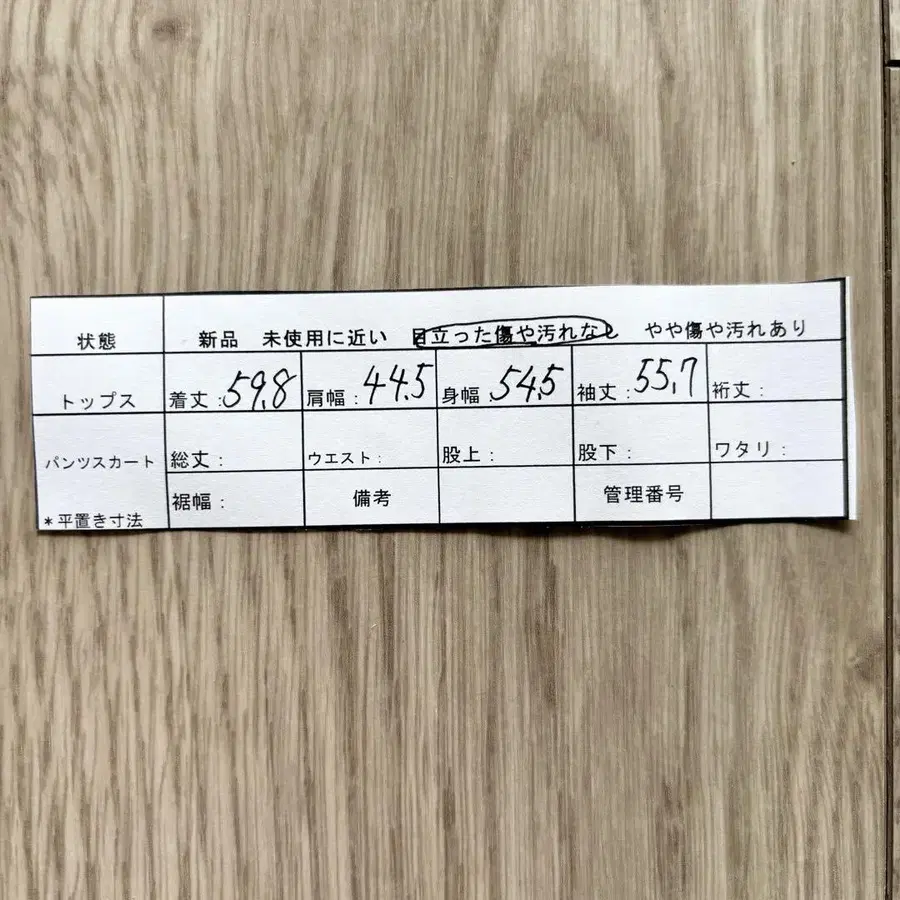 状態 新品 未使用に近い 目立った傷や汚れなし やや傷や汚れあり
トップス 着丈:59.8 肩幅:44.5 身幅:54.5 袖丈:55.7 裄丈:
パンツスカート 総丈: ウエスト: 股上: 股下: ワタリ:
*平置き寸法 裾幅: 備考 管理番号